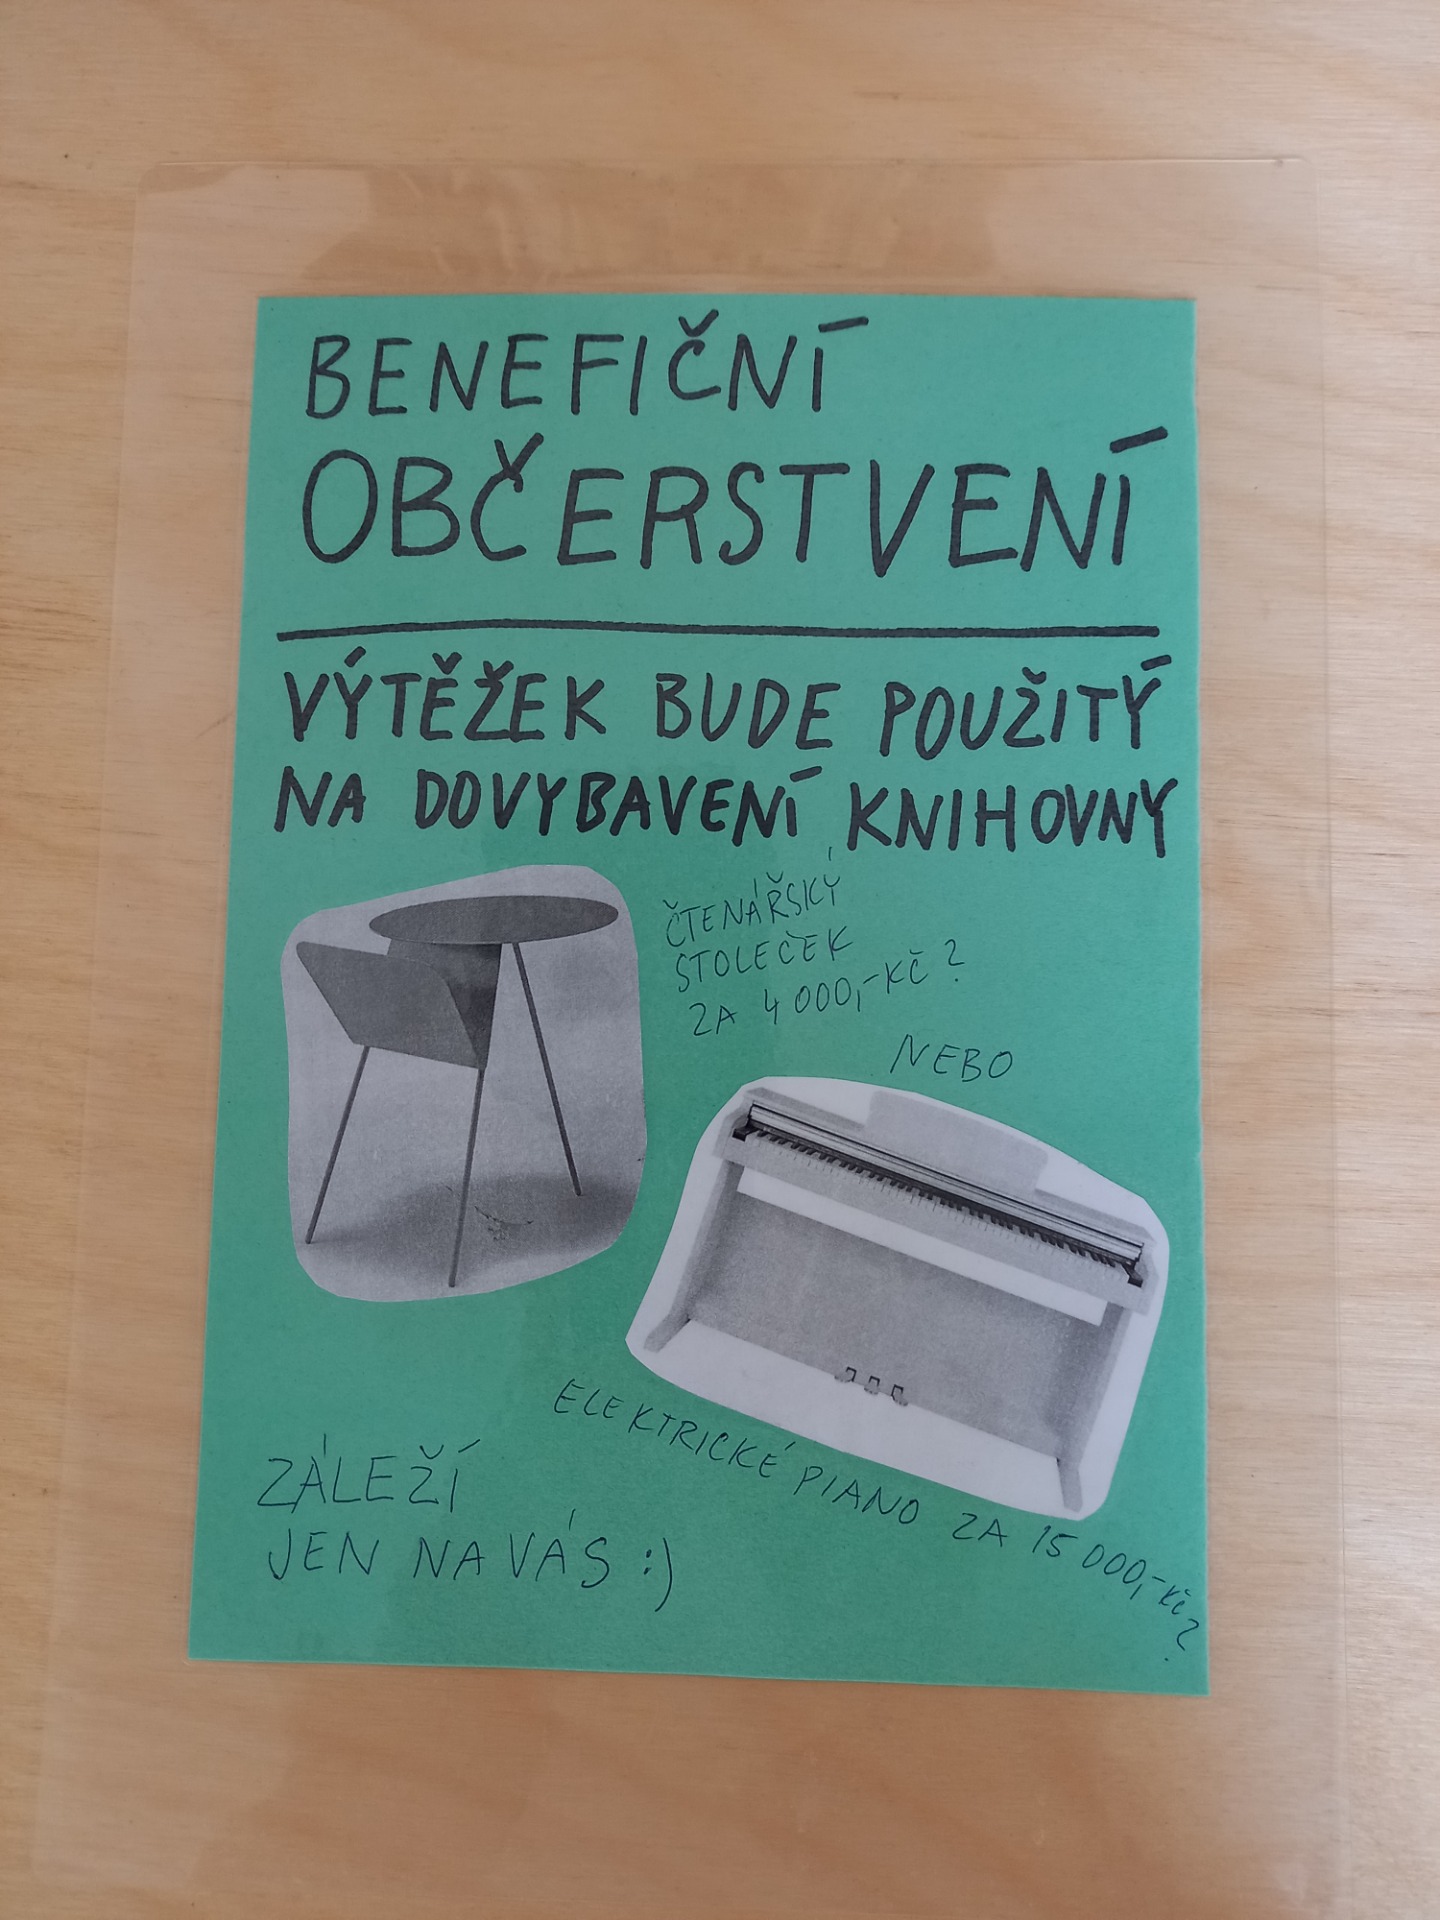 BENEFIČNÍ
OBČERSTVENÍ
VÝTĚŽEK BUDE POUŽITÝ
NA DOVYBAVENÍ KNIHOVNY
ČTENÁŘSKÝ
STOLEČEK
ZA 4 000,-KČ?
NEBO
ELEKTRICKÉ PIANO ZA 15 000,-KČ?
ZÁLEŽÍ
JEN NA VÁS :)